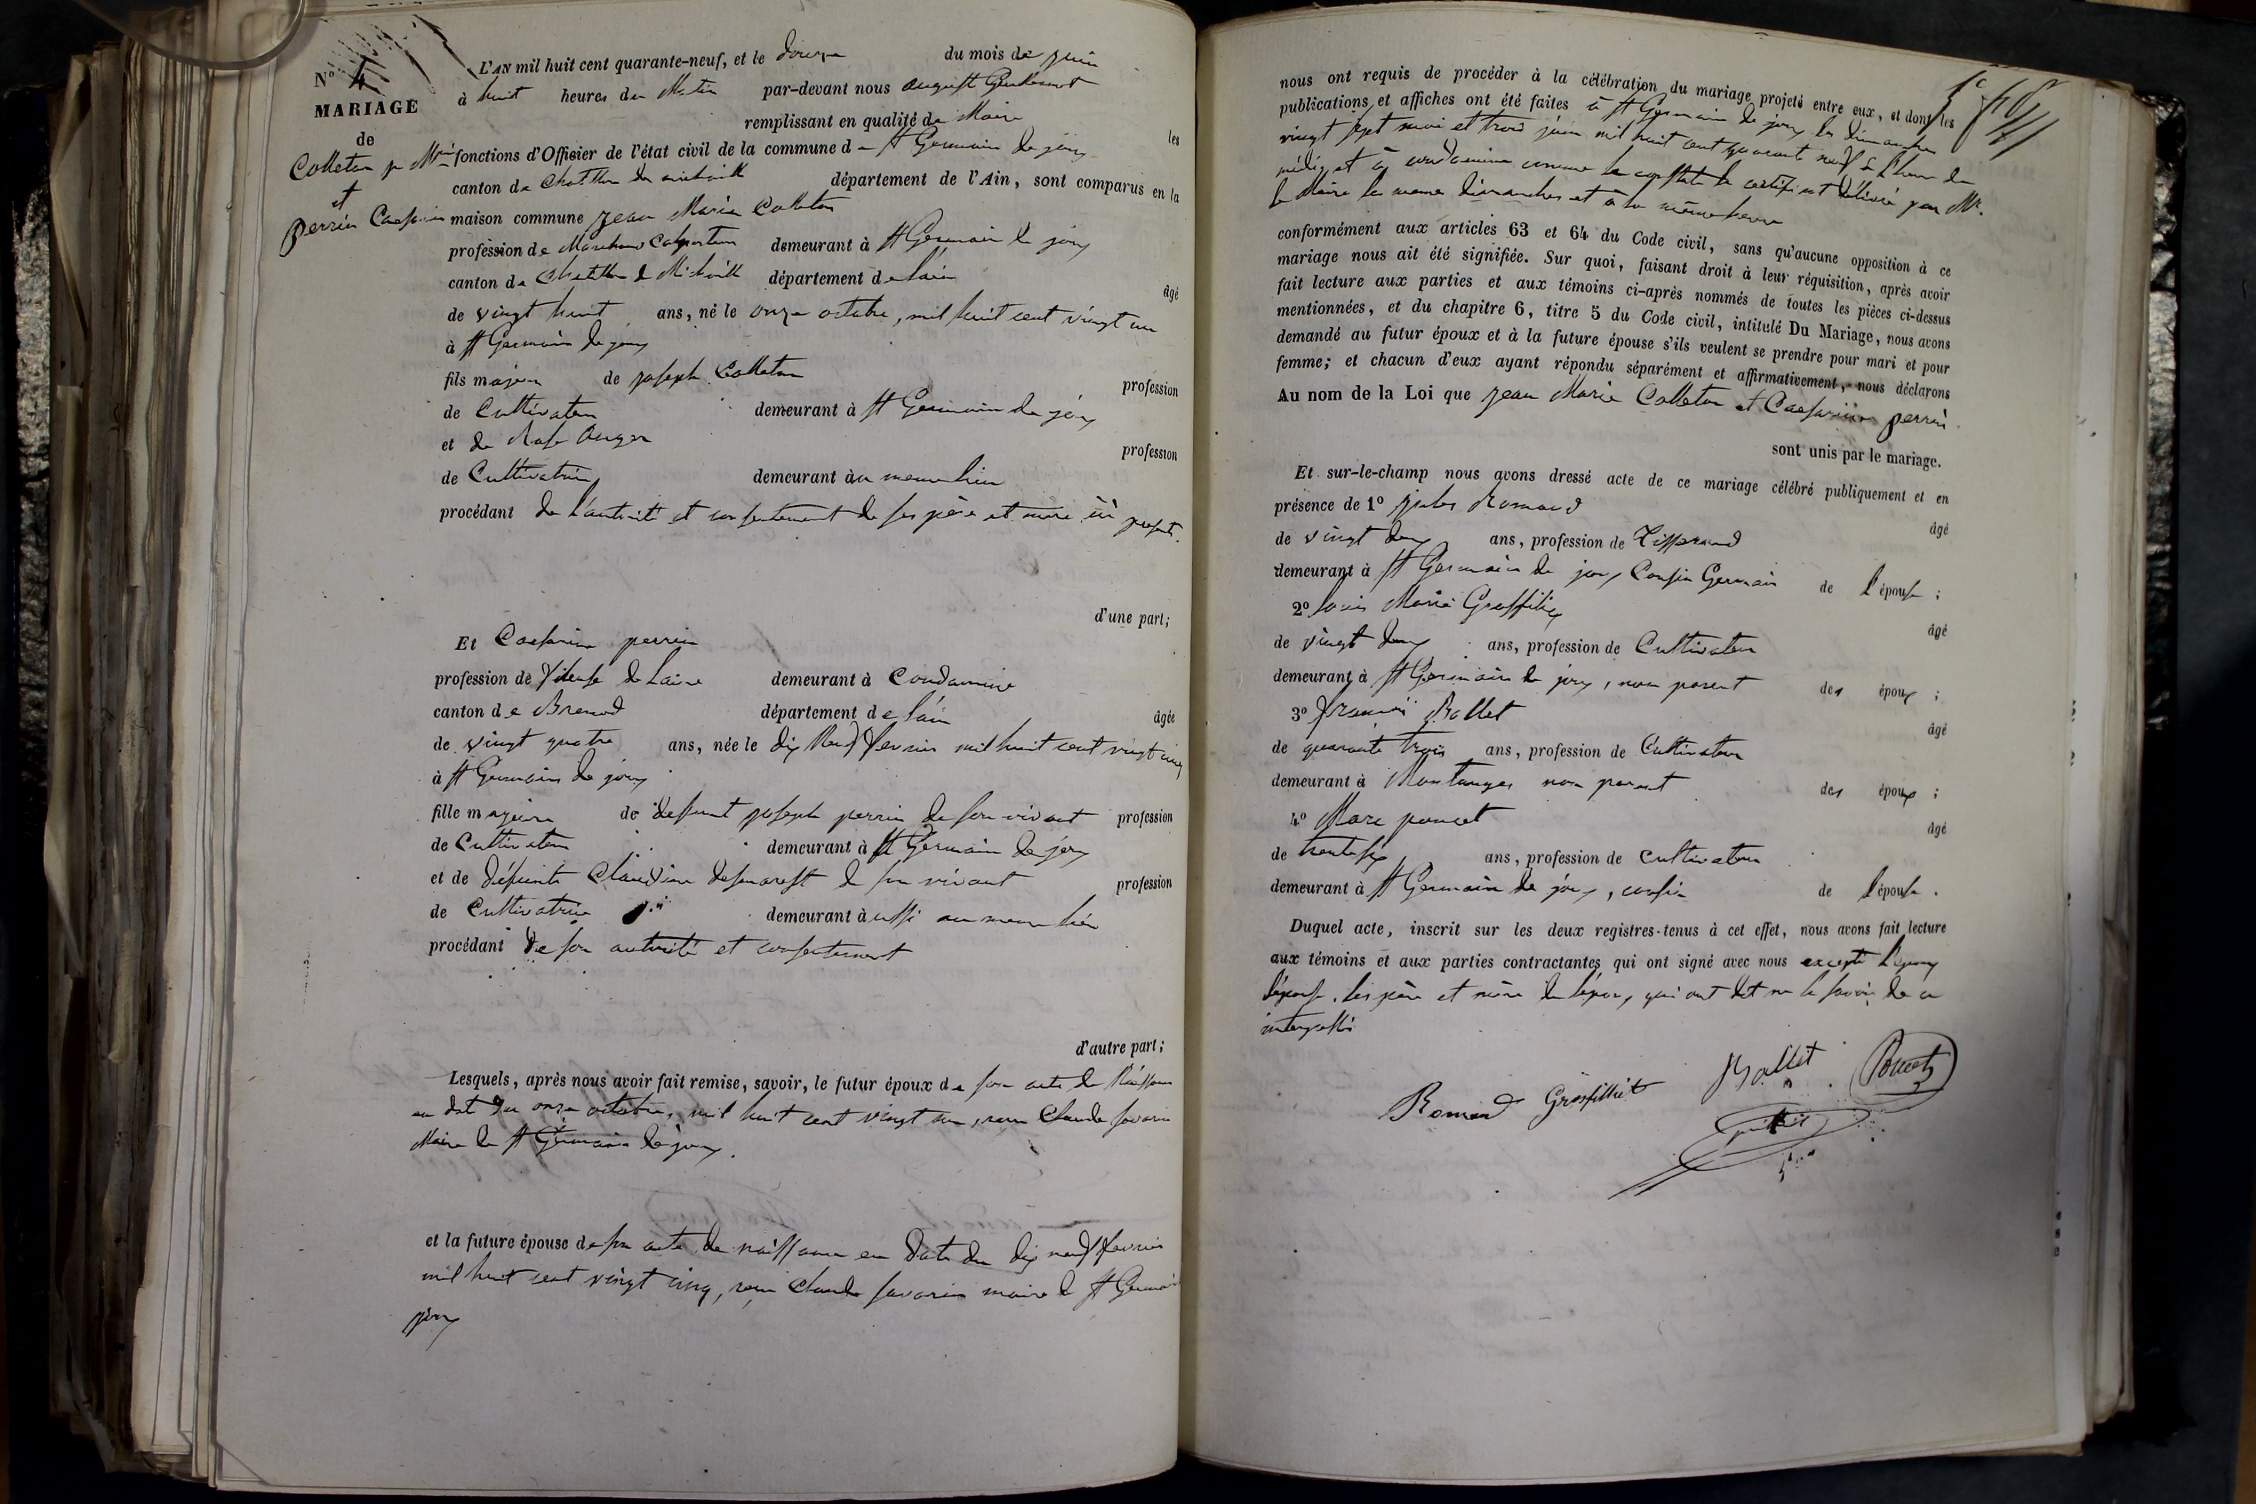 N° 4
MARIAGE
de
Colleton j Mrie
et
perrin Caesarine
L'AN mil huit cent quarante-neuf, et le douze du mois de juin
à huit heures du Matin par-devant nous august
remplissant en qualité de Maire les
fonctions d'Officier de l'état civil de la commune de St Germain de joux
canton de Chatillon de michaille département de l'Ain, sont comparus en la
maison commune jean Marie Colleton
profession de Marchand Colporteur demeurant à St Germain de joux
canton de Chatillon de Michaille département de l'ain âgé
de vingt huit ans, né le onze octobre, mil huit cent vingt un
à St Germain de joux
fils majeur de joseph Colleton profession
de Cultivateur demeurant à St Germain de joux
et de Rose profession
de Cultivatrice demeurant àu meme lieu
procédant de l'autorité et consentement de ses père et mère ici présents.
d'une part;
Et Caesarine perrin
profession de fileuse de Laine demeurant à Condamine
canton de Brenod département de l'ain âgée
de vingt quatre ans, née le dix Neuf fevrier mil huit cent vingt cinq
à St Germain de joux
fille majeure de defunt joseph perrin de son vivant profession
de Cultivateur demeurant à St Germain de joux
et de défunte Claudine de son vivant profession
de Cultivatrice demeurant àussi au meme lieu
procédant de son autorité et consentement
d'autre part;
Lesquels, après nous avoir fait remise, savoir, le futur époux de son acte de Naissance
en dat du onze octobre, mil huit cent vingt un, recu Claude savarin
Maire de St Germain de joux.
et la future épouse de son acte de naissance en Date du dix neuf fevrier
mil huit cent vingt cinq, recu Claude savarin maire de St Germain
joux
nous ont requis de procéder à la célébration du mariage projeté entre eux, et dont les
publications et affiches ont été faites à St Germain de joux les dimanches
vingt sept mai et trois juin mil huit cent quarante neuf à l'heure de
midi et à condamine comme le constate le certificat délivré par Mr.
le Maire les meme dimanches et à la même heure
conformément aux articles 63 et 64 du Code civil, sans qu'aucune opposition à ce
mariage nous ait été signifiée. Sur quoi, faisant droit à leur réquisition, après avoir
fait lecture aux parties et aux témoins ci-après nommés de toutes les pièces ci-dessus
mentionnées, et du chapitre 6, titre 5 du Code civil, intitulé Du Mariage, nous avons
demandé au futur époux et à la future épouse s'ils veulent se prendre pour mari et pour
femme; et chacun d'eux ayant répondu séparément et affirmativement, nous déclarons
Au nom de la Loi que jean Marie Colleton et Caesarine perrin
sont unis par le mariage.
Et sur-le-champ nous avons dressé acte de ce mariage célébré publiquement et en
présence de 1° jules Romand âgé
de vingt deux ans, profession de Tisserand
demeurant à St Germain de joux Cousin Germain de l'épouse ;
2° louis Marie Grosfilliex âgé
de vingt deux ans, profession de Cultivateur
demeurant à St Germain de joux, non parent des époux ;
3° françois Ballet âgé
de quarante trois ans, profession de Cultivateur
demeurant à Montanges non parent des époux ;
4° Marc poncet âgé
de trente six ans, profession de cultivateur
demeurant à St Germain de joux, cousin de l'épouse .
Duquel acte, inscrit sur les deux registres tenus à cet effet, nous avons fait lecture
aux témoins et aux parties contractantes qui ont signé avec nous excepté l'époux
l'épouse. les père et mère de l'époux, qui ont dit ne le savoir de ce
interpellés
Romand Grosfillet Ballet Poncet